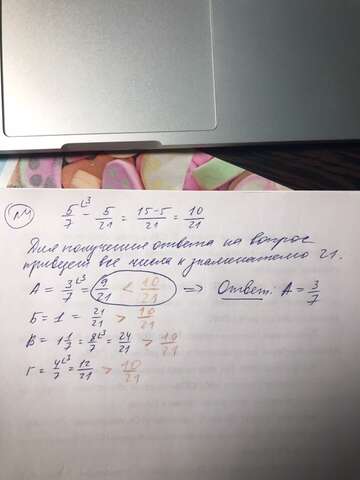 №4
5/7 ⌞3 - 5/21 = 15-5/21 = 10/21
Для получения ответа на вопрос
приведем все числа к знаменателю 21.
А = 3/7 ⌞3 = 9/21 < 10/21 => Ответ: А = 3/7
Б = 1 = 21/21 > 10/21
В = 1 1/7 = 8/7 ⌞3 = 24/21 > 10/21
Г = 4/7 ⌞3 = 12/21 > 10/21